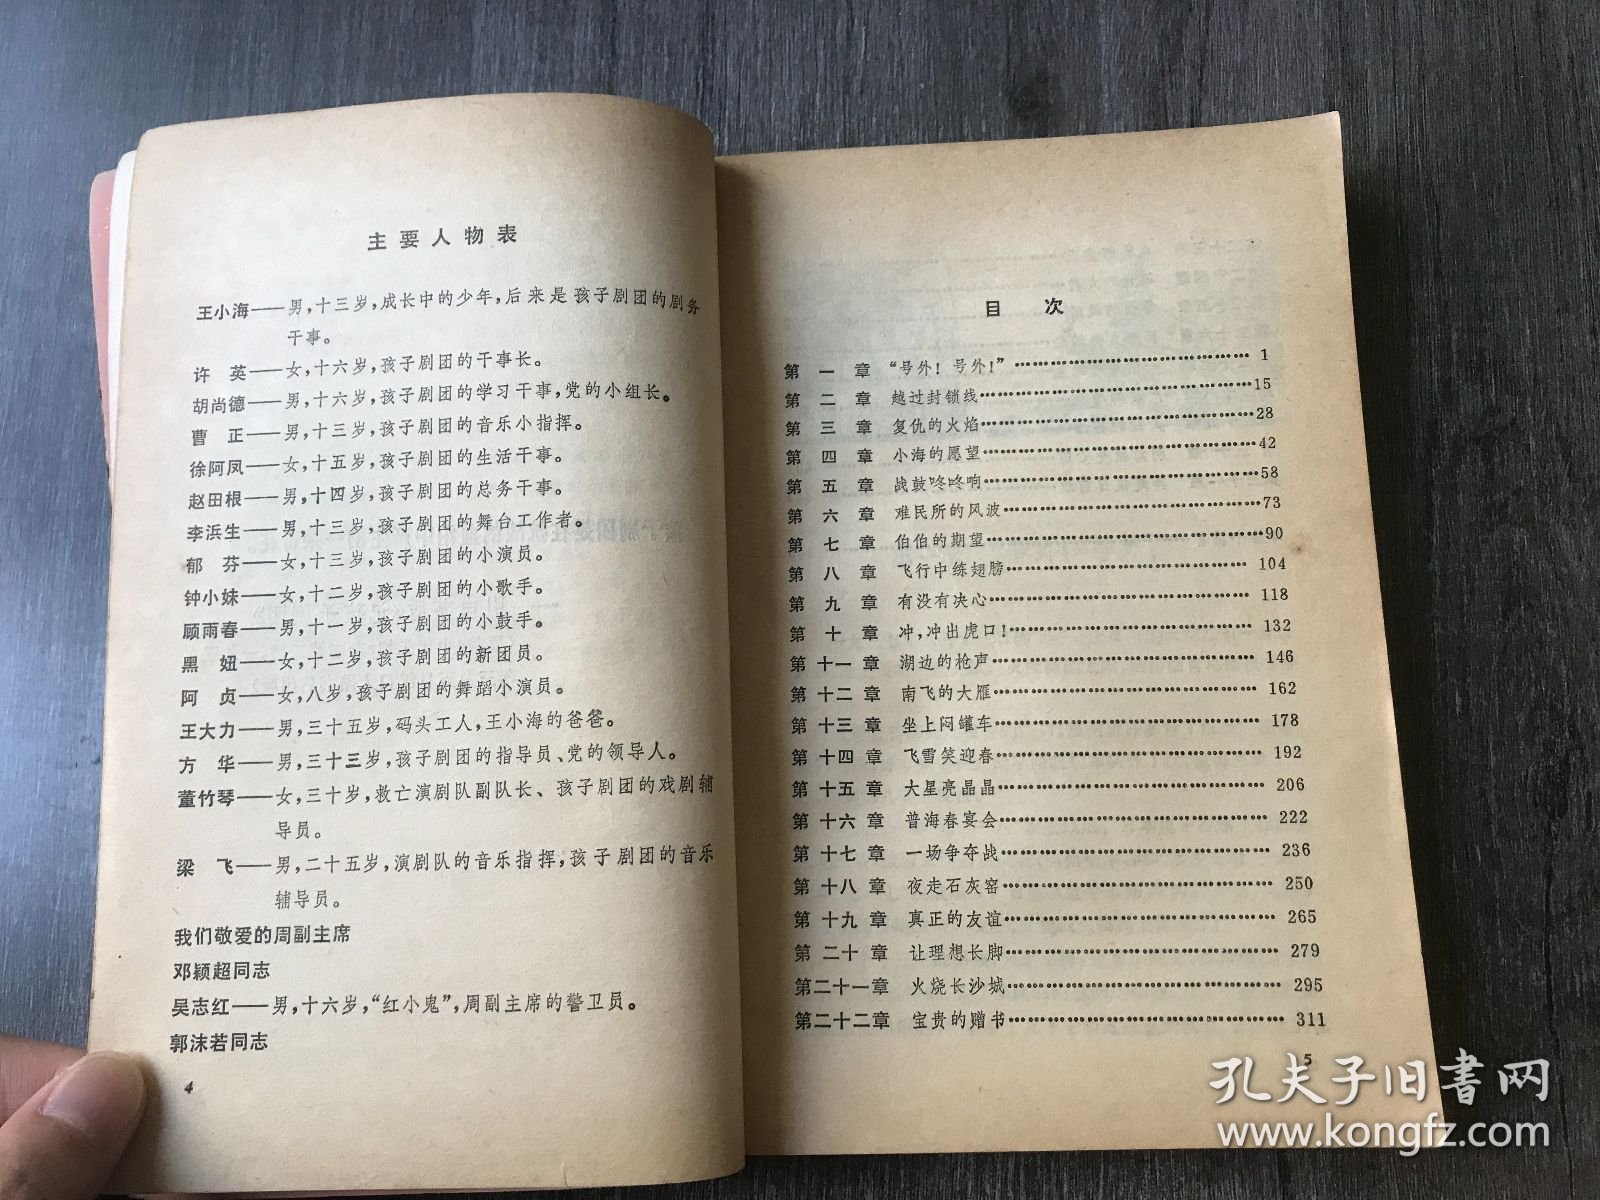 主要人物表
王小海——男，十三岁，成长中的少年，后来是孩子剧团的剧务
干事。
许　英——女，十六岁，孩子剧团的干事长。
胡尚德——男，十六岁，孩子剧团的学习干事，党的小组长。
曹　正——男，十三岁，孩子剧团的音乐小指挥。
徐阿凤——女，十五岁，孩子剧团的生活干事。
赵田根——男，十四岁，孩子剧团的总务干事。
李浜生——男，十三岁，孩子剧团的舞台工作者。
郁　芬——女，十三岁，孩子剧团的小演员。
钟小妹——女，十二岁，孩子剧团的小歌手。
顾雨春——男，十一岁，孩子剧团的小鼓手。
黑　妞——女，十二岁，孩子剧团的新团员。
阿　贞——女，八岁，孩子剧团的舞蹈小演员。
王大力——男，三十五岁，码头工人，王小海的爸爸。
方　华——男，三十三岁，孩子剧团的指导员、党的领导人。
董竹琴——女，三十岁，救亡演剧队副队长、孩子剧团的戏剧辅
导员。
梁　飞——男，二十五岁，演剧队的音乐指挥，孩子剧团的音乐
辅导员。
我们敬爱的周副主席
邓颖超同志
吴志红——男，十六岁，“红小鬼”，周副主席的警卫员。
郭沫若同志
4
目　次
第一章　“号外！号外！”……………………1
第二章　越过封锁线……………………15
第三章　复仇的火焰……………………28
第四章　小海的愿望……………………42
第五章　战鼓咚咚响……………………58
第六章　难民所的风波……………………73
第七章　伯伯的期望……………………90
第八章　飞行中练翅膀……………………104
第九章　有没有决心……………………118
第十章　冲，冲出虎口！……………………132
第十一章　湖边的枪声……………………146
第十二章　南飞的大雁……………………162
第十三章　坐上闷罐车……………………178
第十四章　飞雪笑迎春……………………192
第十五章　大星亮晶晶……………………206
第十六章　普海春宴会……………………222
第十七章　一场争夺战……………………236
第十八章　夜走石灰窑……………………250
第十九章　真正的友谊……………………265
第二十章　让理想长脚……………………279
第二十一章　火烧长沙城……………………295
第二十二章　宝贵的赠书……………………311
5
孔夫子旧书网
www.kongfz.com